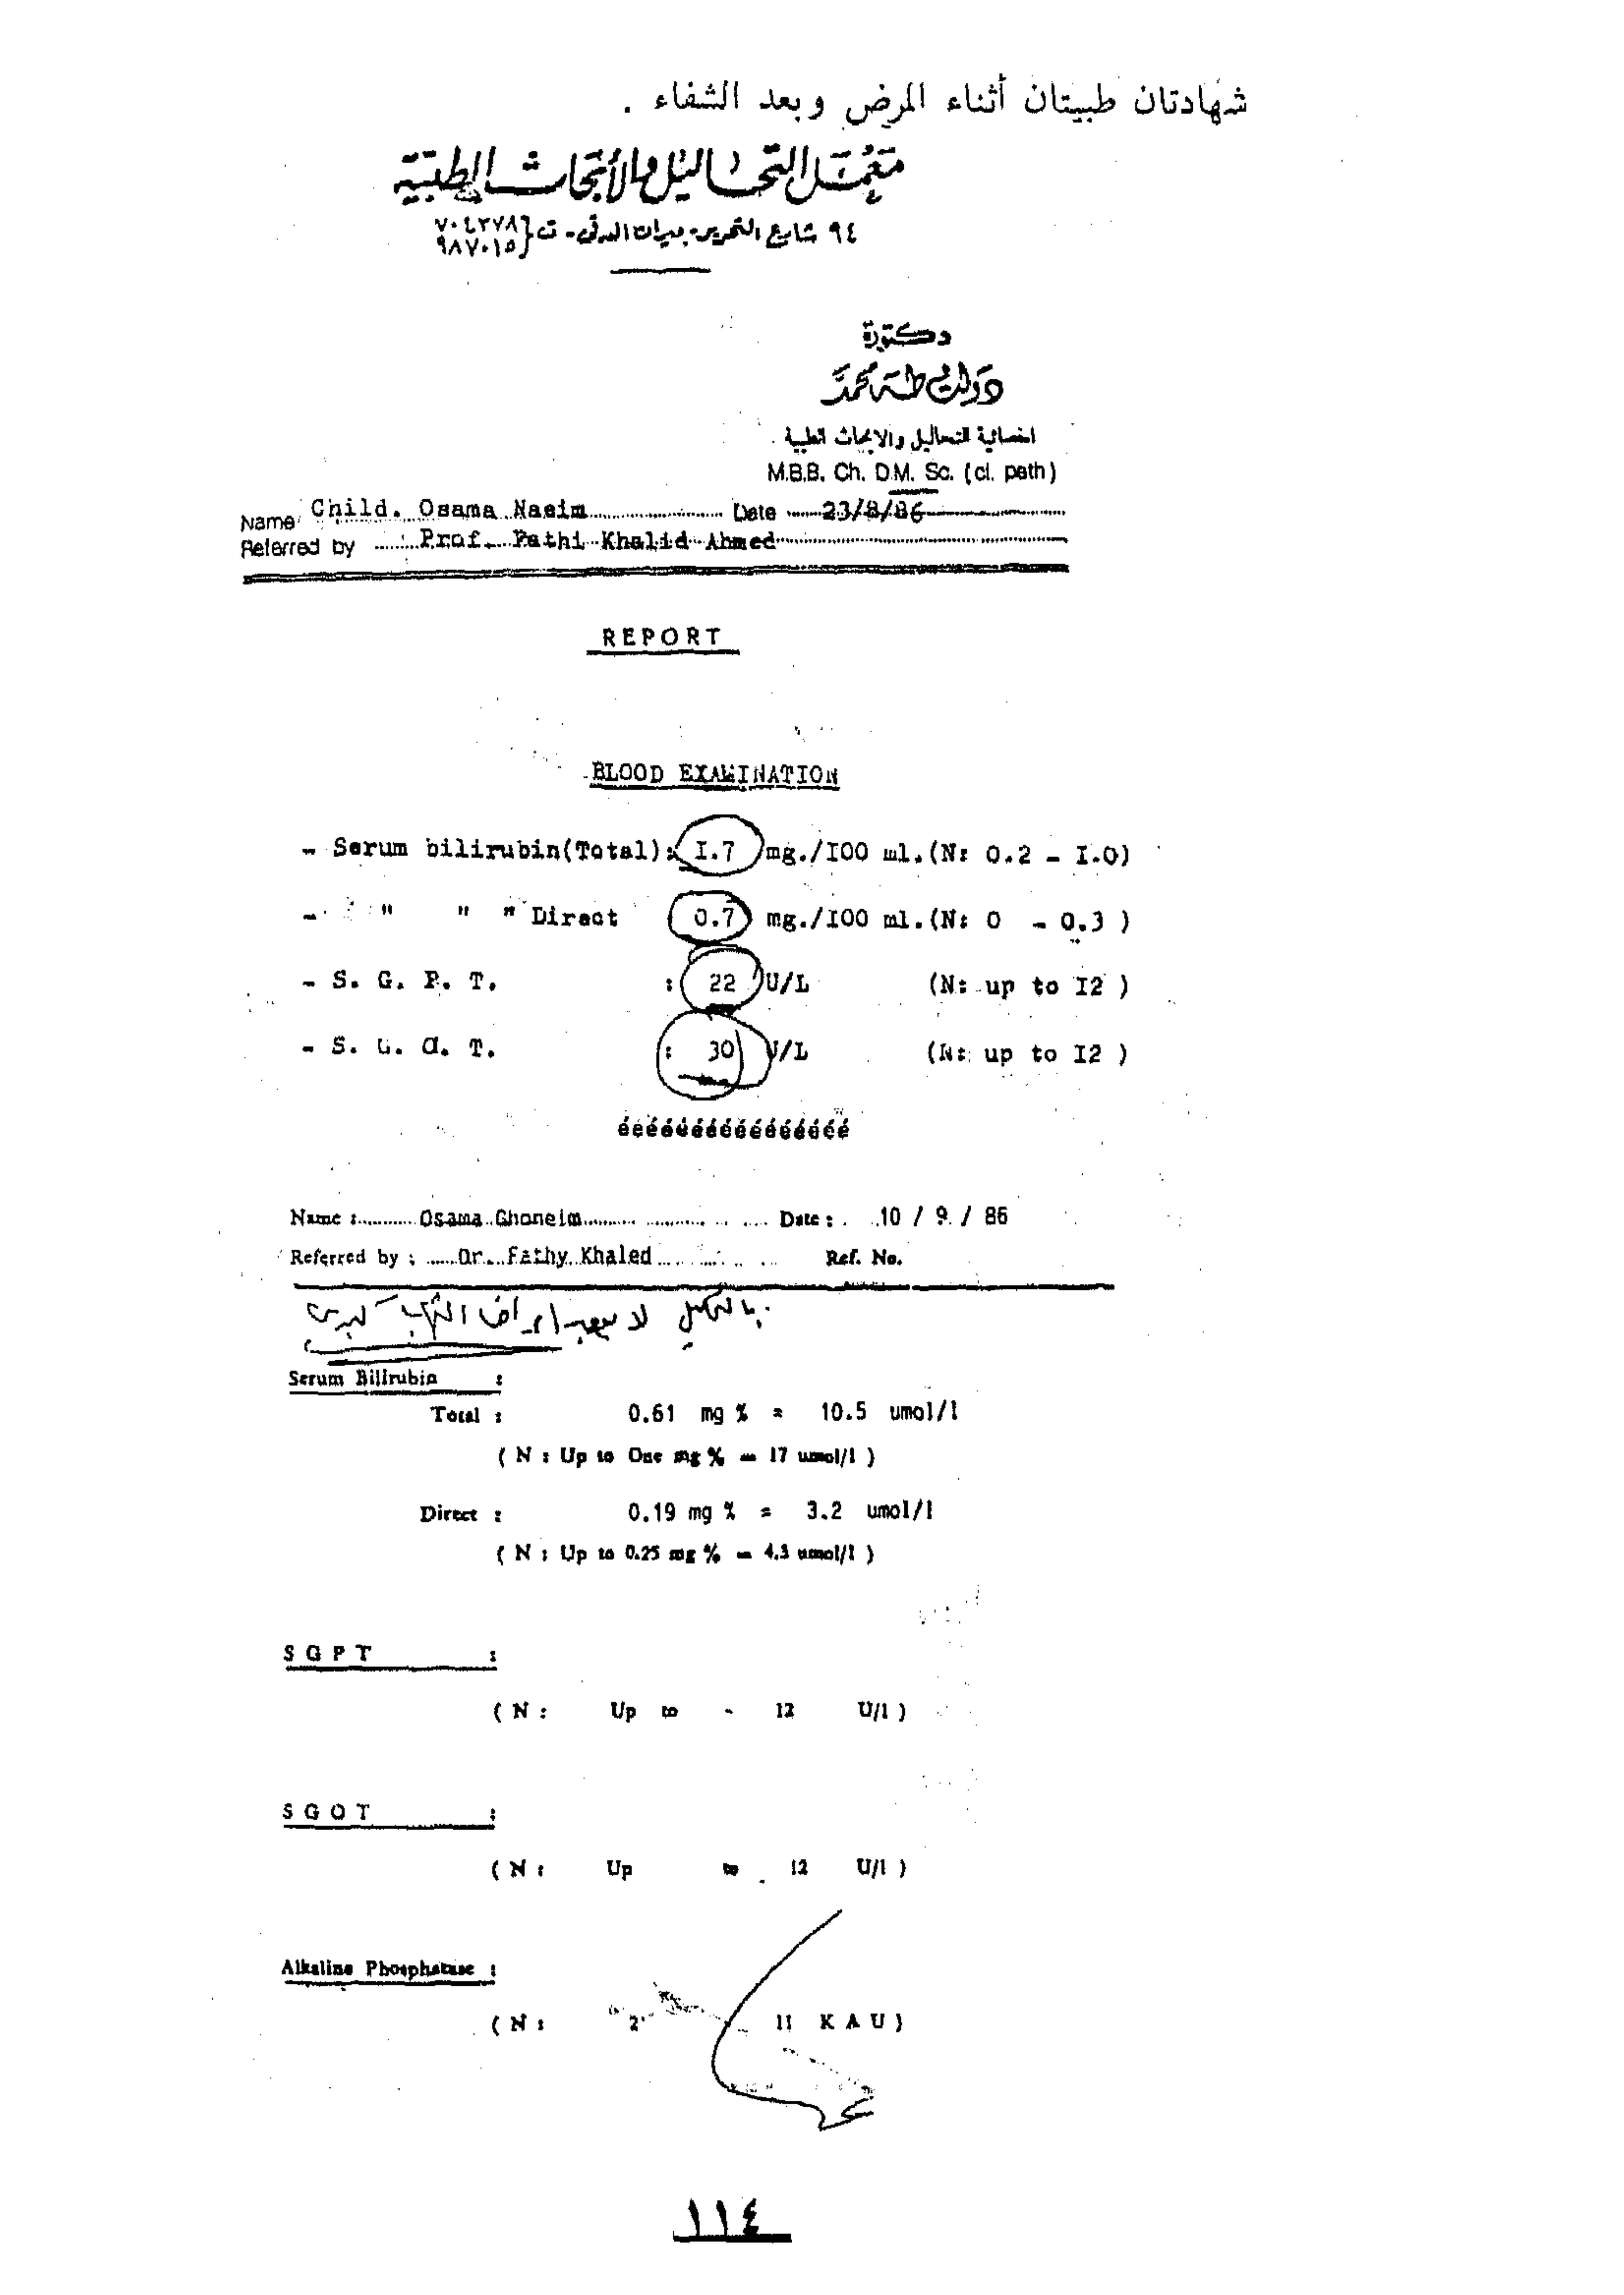 شهادتان طبيتان أثناء المرض وبعد الشفاء .
معمل التحاليل والأبحاث الطبية
٩٤ شارع التحرير - ميدان الدقى - ت { ٧٠٤٢٧٨
٩٨٧٠١٥
دكتورة
دولت طه محمد
اخصائية التحاليل والابحاث الطبية
M.B.B. Ch. D.M. Sc. (cl. path)
Name Child. Osama Naeim Date 23/8/86
Referred by Prof. Fathi Khalid Ahmed
REPORT
BLOOD EXAMINATION
- Serum bilirubin(Total): I.7 mg./I00 ml.(N: 0.2 - I.0)
- " " " Direct 0.7 mg./I00 ml.(N: 0 - 0.3 )
- S. G. P. T. : 22 U/L (N: up to I2 )
- S. G. O. T. : 30 U/L (N: up to I2 )
éééééééééééééééé
Name : Osama Ghoneim Date : 10 / 9 / 86
Referred by : Dr. Fathy Khaled Ref. No.
بالتحليل لا يوجد التهاب كبدى
Serum Bilirubin :
Total : 0.61 mg % = 10.5 umol/l
( N : Up to One mg % = 17 umol/l )
Direct : 0.19 mg % = 3.2 umol/l
( N : Up to 0.25 mg % = 4.3 umol/l )
S G P T :
( N : Up to - 12 U/l )
S G O T :
( N : Up to 12 U/l )
Alkaline Phosphatase :
( N : 2 11 K A U )
١١٤